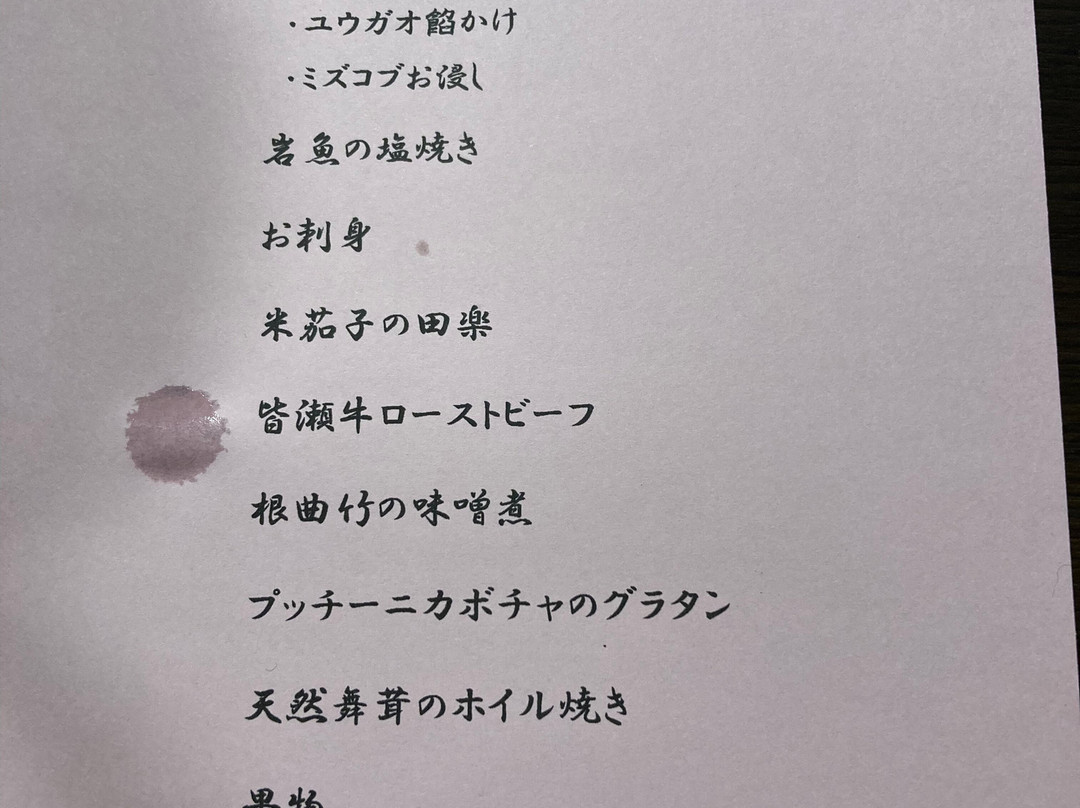 ・ユウガオ餡かけ
・ミズコブお浸し
岩魚の塩焼き
お刺身
米茄子の田楽
皆瀬牛ローストビーフ
根曲竹の味噌煮
プッチーニカボチャのグラタン
天然舞茸のホイル焼き
果物